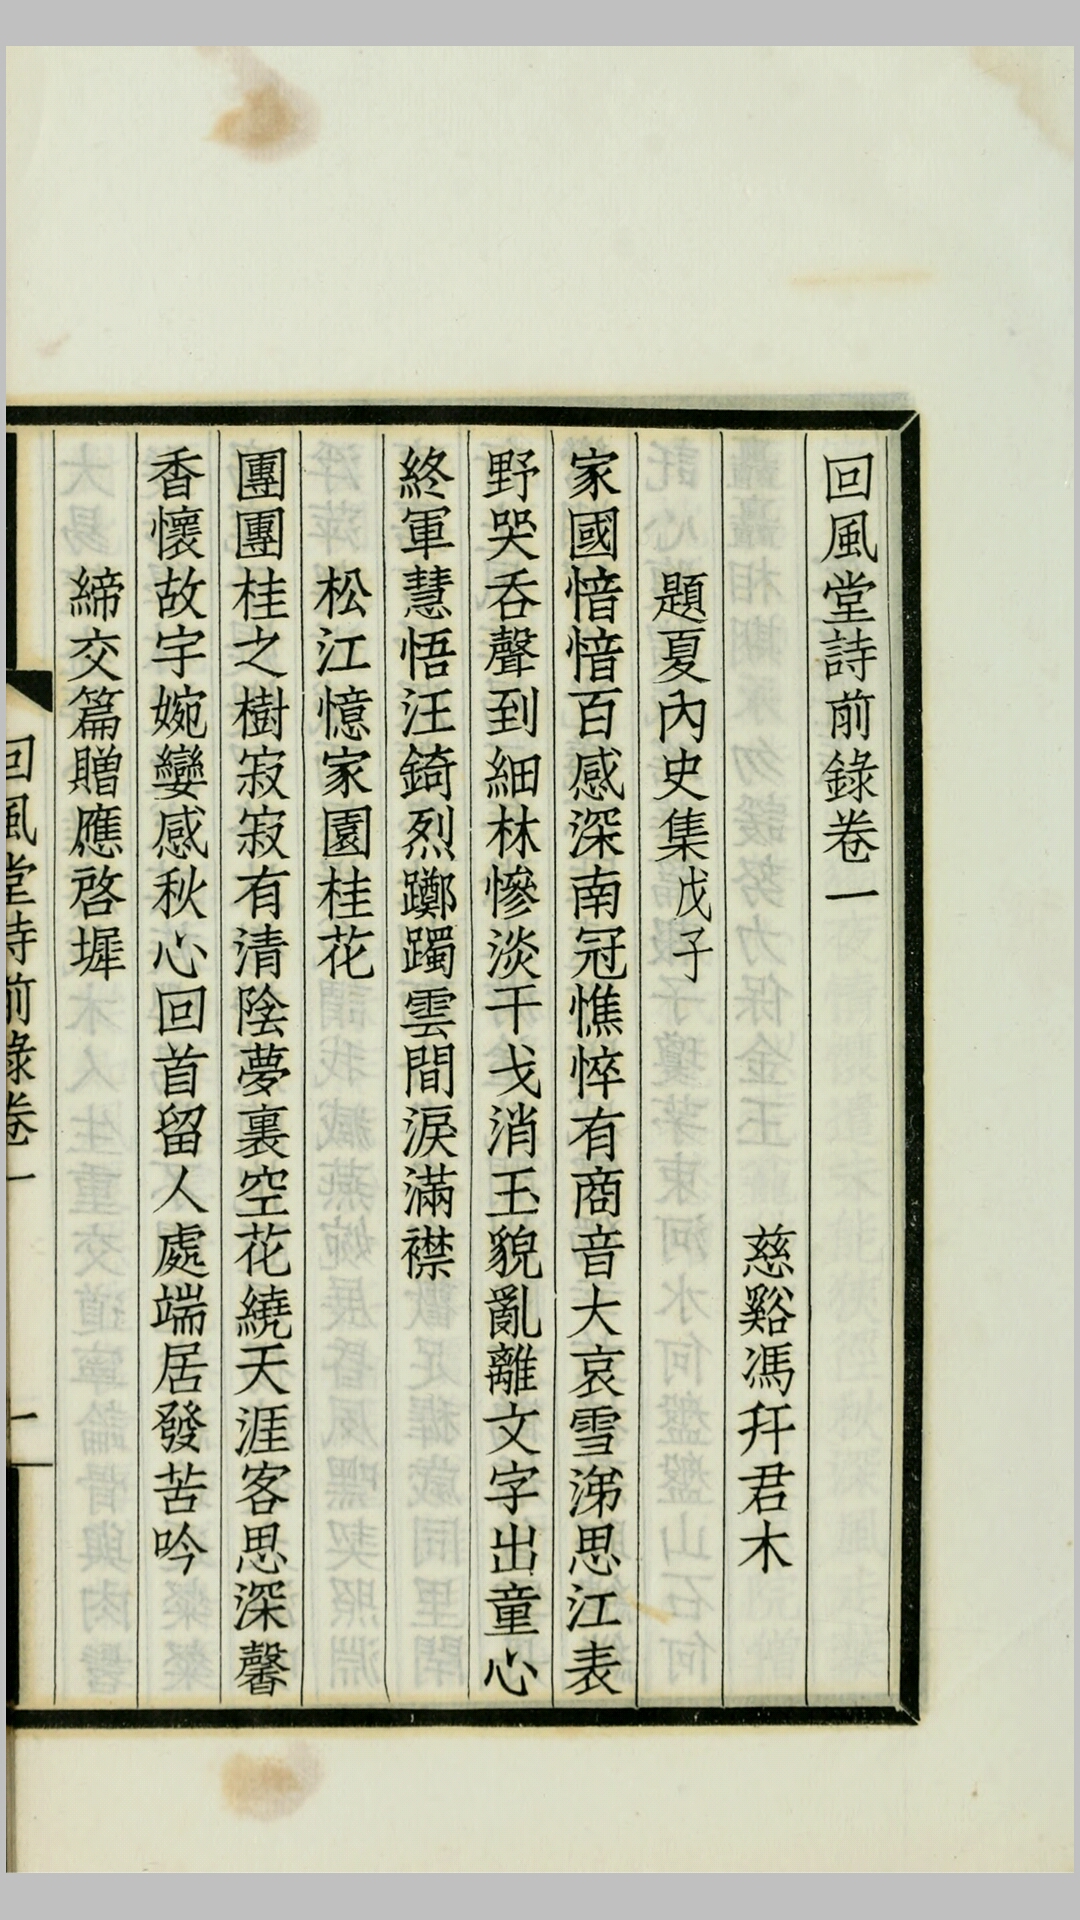 回風堂詩前錄卷一
慈谿馮幵君木
題夏內史集戊子
家國愔愔百感深南冠憔悴有商音大哀雪涕思江表
野哭吞聲到細林慘淡干戈消玉貌亂離文字出童心
終軍慧悟汪錡烈躑躅雲間淚滿襟
松江憶家園桂花
團團桂之樹寂寂有清陰夢裏空花繞天涯客思深馨
香懷故宇婉孌感秋心回首留人處端居發苦吟
締交篇贈應啓墀
回風堂詩前錄卷一
一